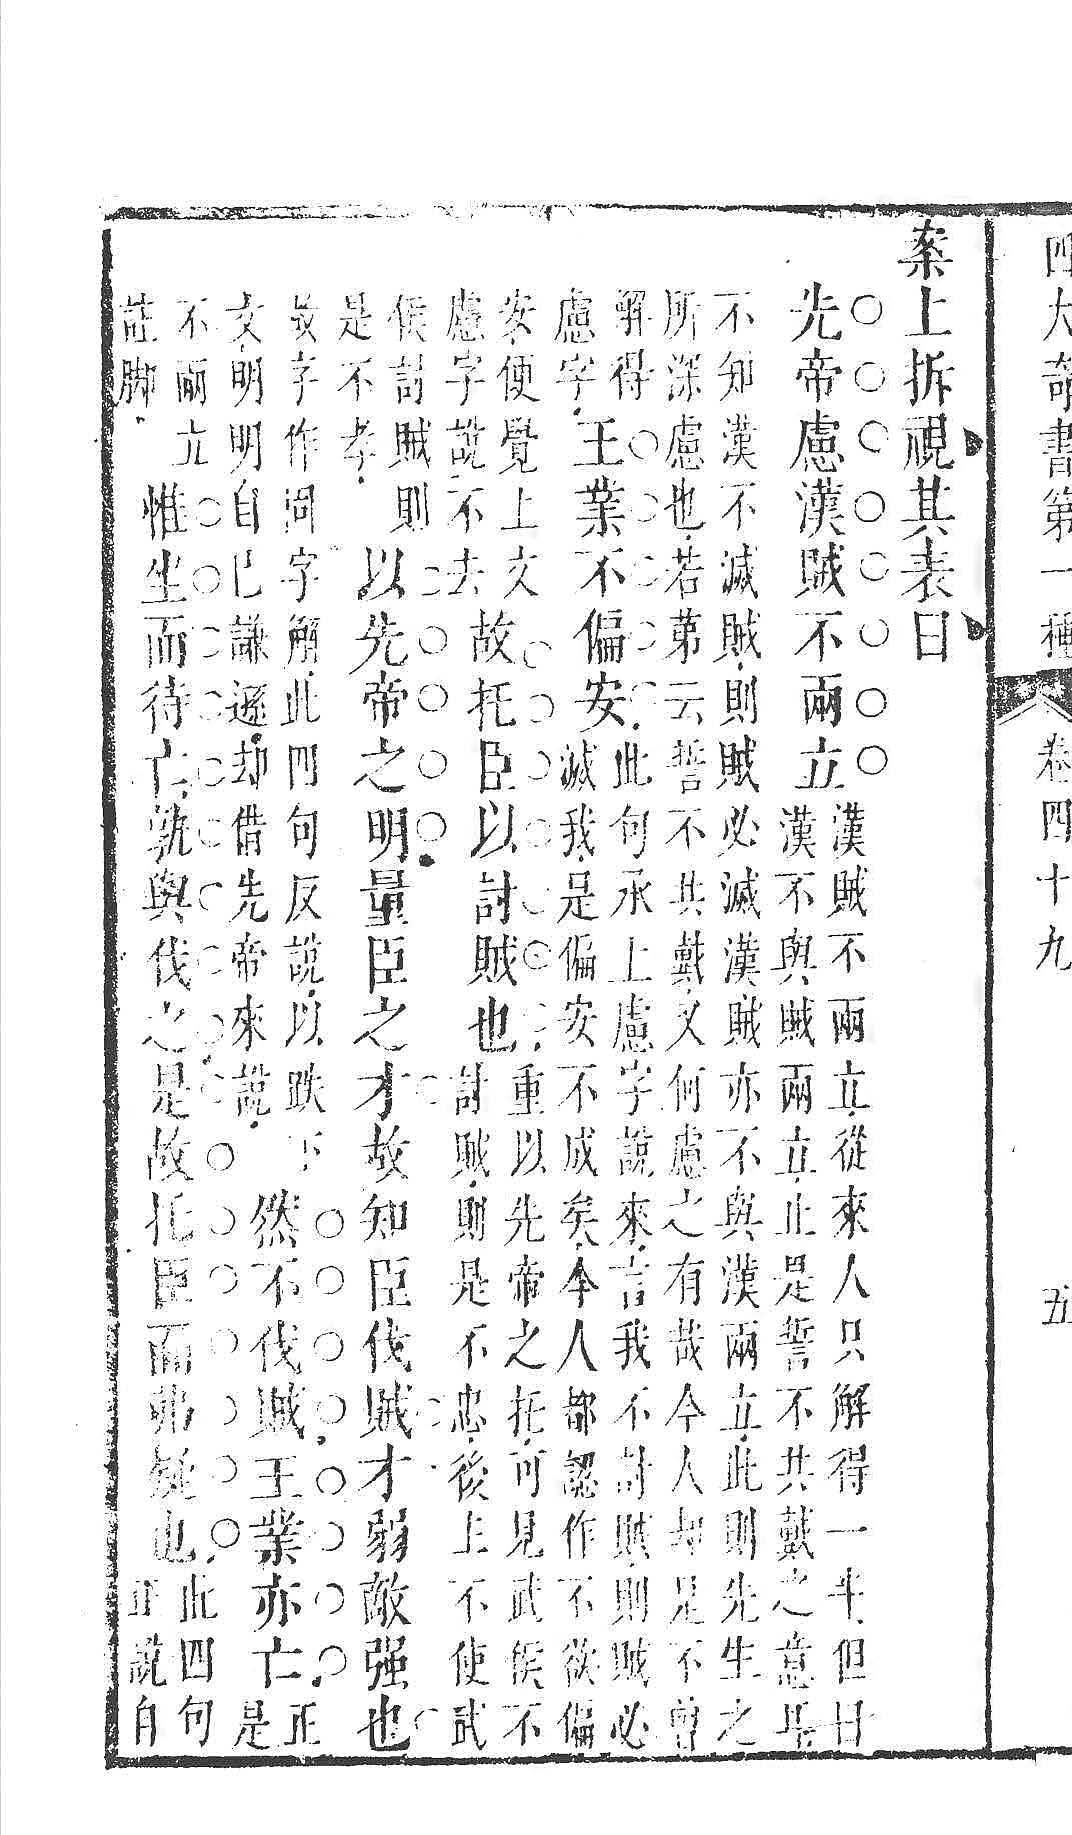 四大奇書第一種　卷四十九　五
案上拆視其表曰
先帝慮漢賊不兩立
漢賊不兩立從來人只解得一半但曰
漢不與賊兩立止是誓不共戴之意耳
不知漢不滅賊則賊必滅漢賊亦不與漢兩立此則先生之
所深慮也若第云誓不共戴又何慮之有哉今人却是不曾
解得
慮字
王業不偏安
此句承上慮字說來言我不討賊則賊必
滅我是偏安不成矣今人都認作不欲偏
安便覺上文
慮字說不去
故托臣以討賊也
重以先帝之托可見武侯不
討賊則是不忠後主不使武
侯討賊則
是不孝
以先帝之明量臣之才故知臣伐賊才弱敵强也
故字作固字解此四句反說以跌下
文明明自己謙遜却借先帝來說
然不伐賊王業亦亡
正
是
不兩立
註脚
惟坐而待亡孰與伐之是故托臣而弗疑也
此四句
正說自